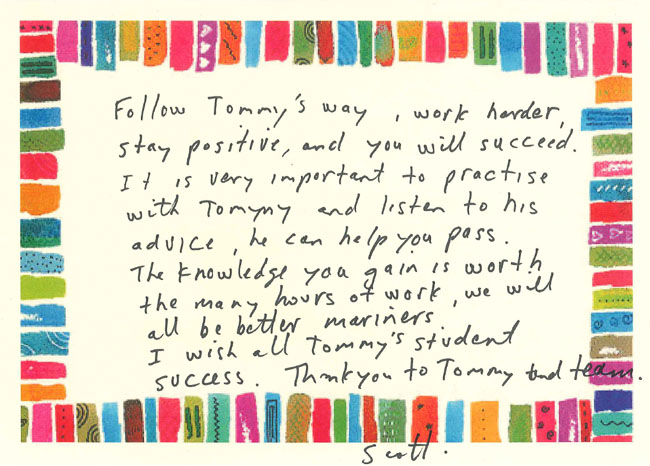 Follow Tommy's way, work harder,
stay positive, and you will succeed.
It is very important to practise
with Tomyny and listen to his
advice, he can help you pass.
The knowledge you gain is worth
the many hours of work, we will
all be better mariners
I wish all Tommy's student
success. Thankyou to Tommy and team.
Scott.